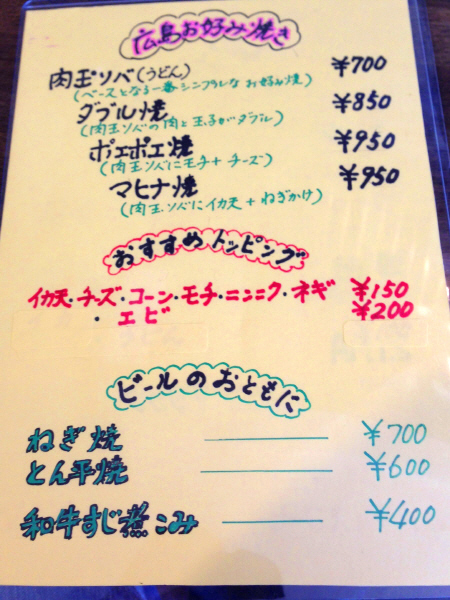 広島お好み焼き
肉玉ソバ(うどん) ¥700
(ベースとなる一番シンプルなお好み焼)
ダブル焼 ¥850
(肉玉ソバの肉と玉子がダブル)
ポエポエ焼 ¥950
(肉玉ソバにモチ+チーズ)
マヒナ焼 ¥950
(肉玉ソバにイカ天+ねぎかけ)
おすすめトッピング
イカ天・チーズ・コーン・モチ・ニンニク・ネギ ¥150
・エビ ¥200
ビールのおともに
ねぎ焼 ¥700
とん平焼 ¥600
和牛すじ煮こみ ¥400